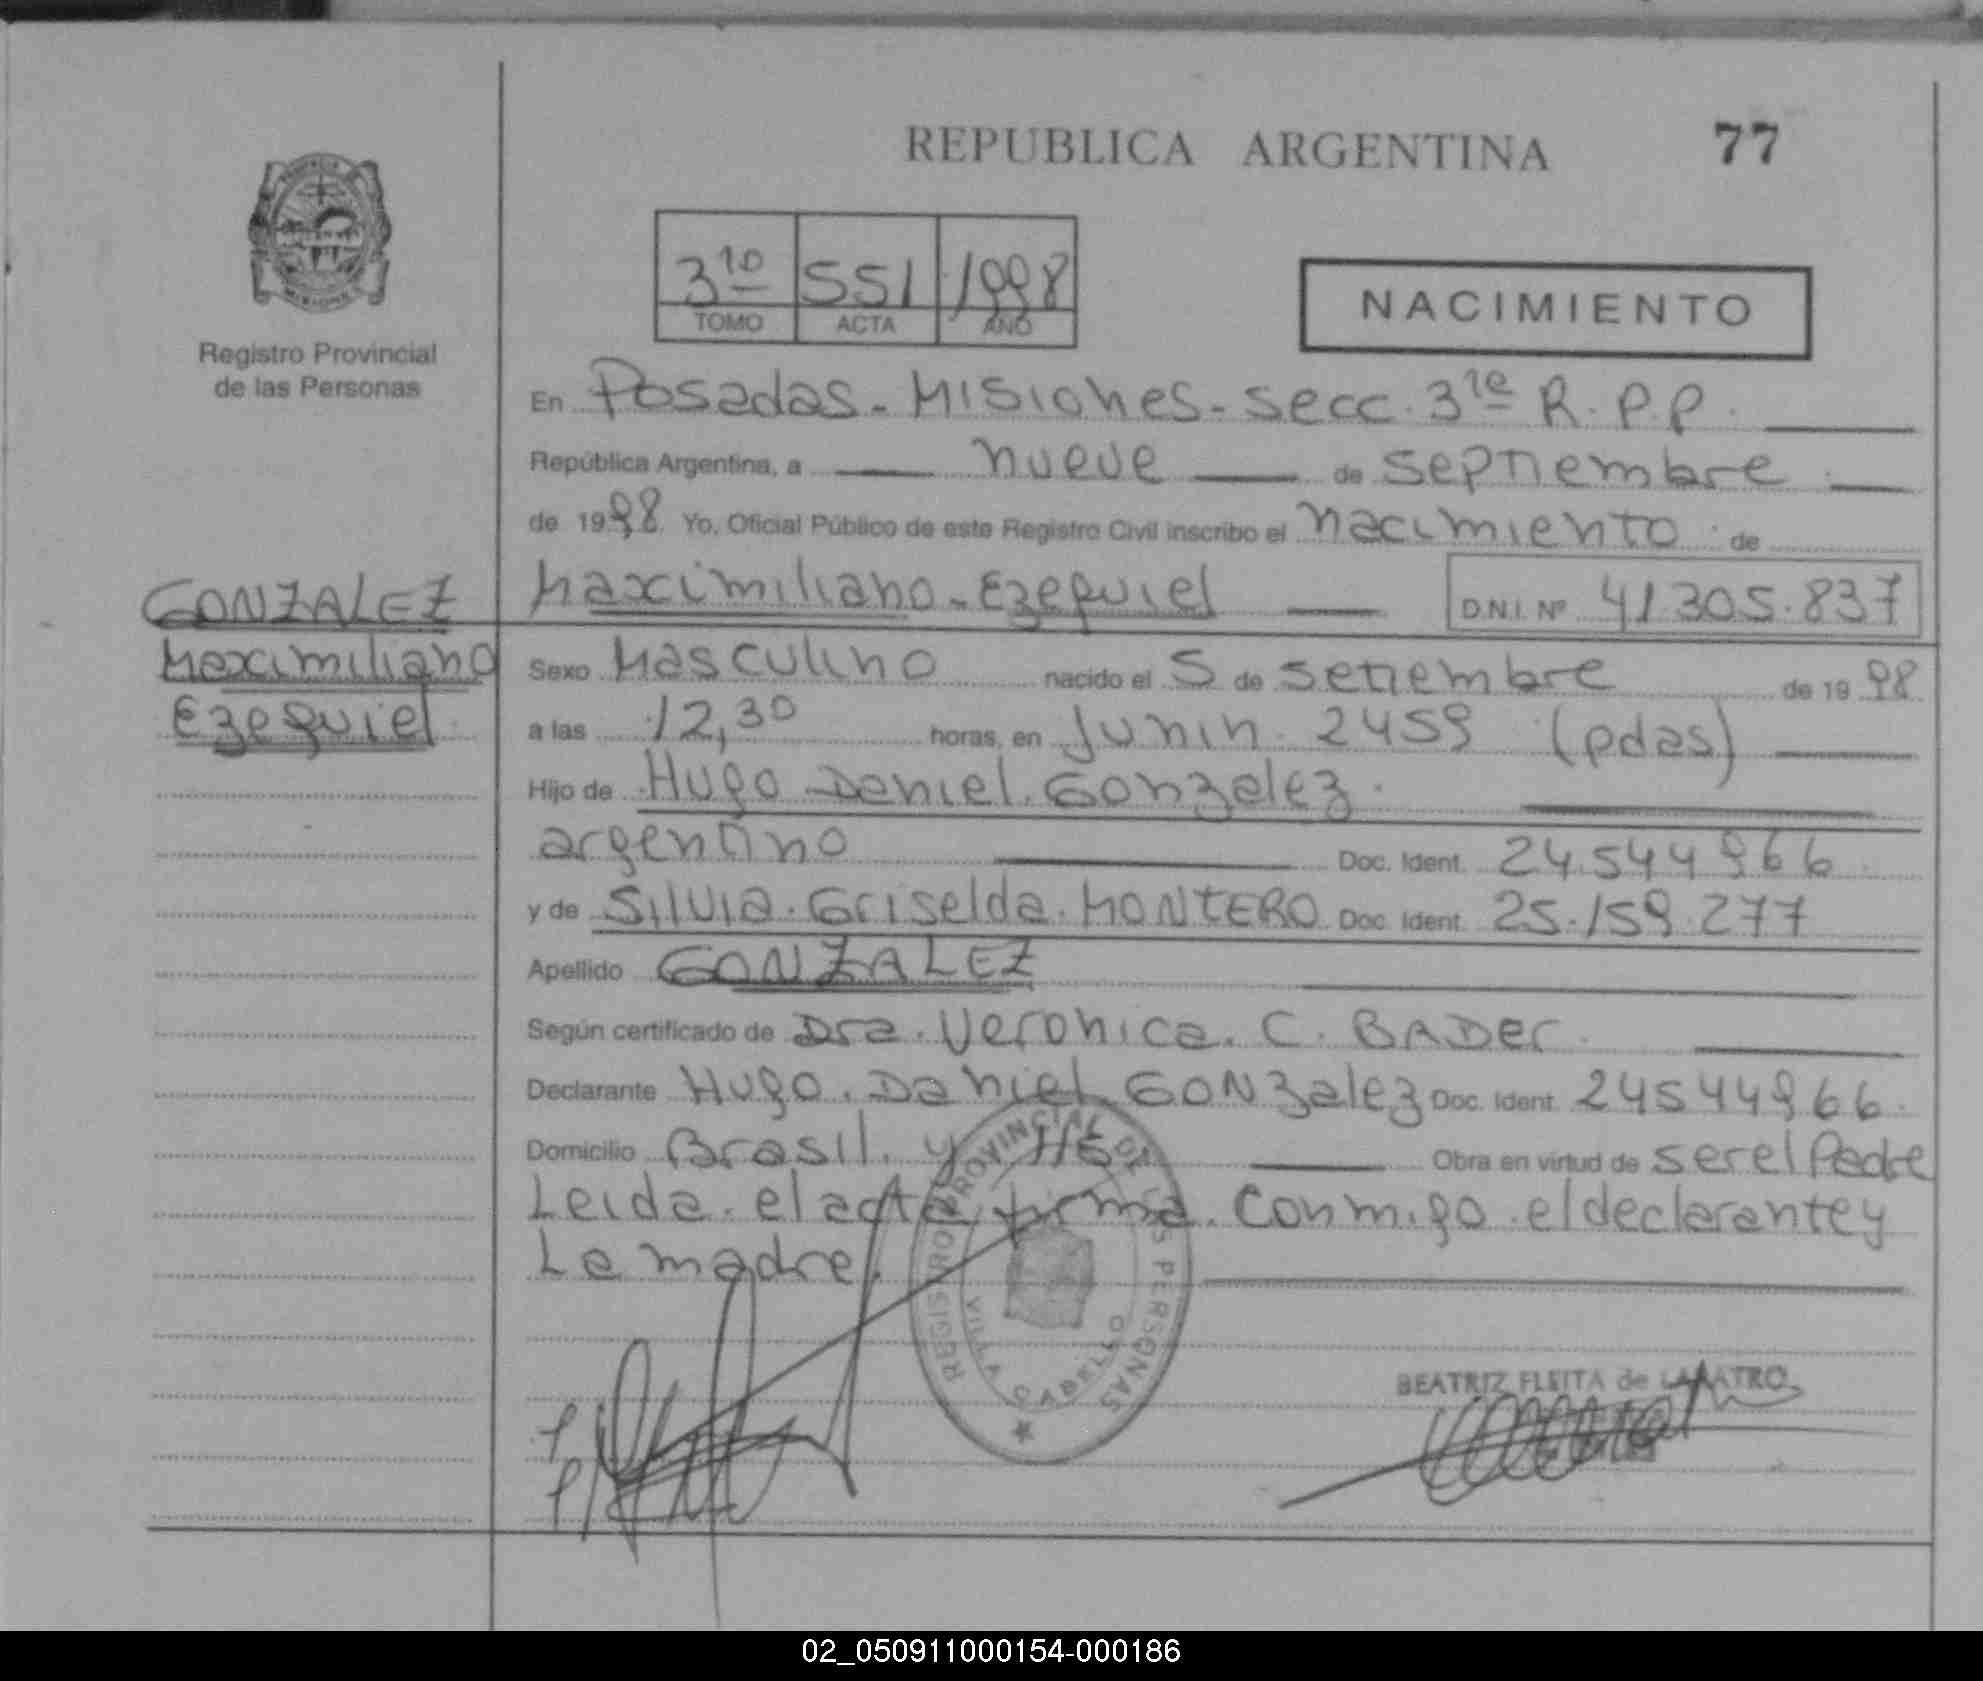 REPUBLICA ARGENTINA
77
Registro Provincial
de las Personas
3ro 551 1998
TOMO ACTA AÑO
NACIMIENTO
En Posadas - Misiones - secc. 3ra R.P.P.
República Argentina, a nueve de septiembre
de 1998 Yo, Oficial Público de este Registro Civil inscribo el nacimiento de
GONZALEZ
Maximiliano
Ezequiel
Maximiliano - Ezequiel D.N.I. Nº 41.305.837
Sexo Masculino nacido el 5 de setiembre de 1998
a las 12,30 horas, en Junin. 2459 (pdas)
Hijo de Hugo Daniel. Gonzalez.
argentino Doc. Ident. 24.544966
y de Silvia. Griselda. MONTERO Doc. Ident. 25.159.277
Apellido GONZALEZ
Según certificado de Dra. Veronica. C. BADer.
Declarante Hugo. Daniel GONzalez Doc. Ident. 24544966.
Domicilio Brasil. y Obra en virtud de ser el Padre
Leida. el acta, firma. conmigo. el declarante y
La madre.
REGISTRO PROVINCIAL DE LAS PERSONAS
VILLA CABELLO
BEATRIZ FLEITA de
02_050911000154-000186